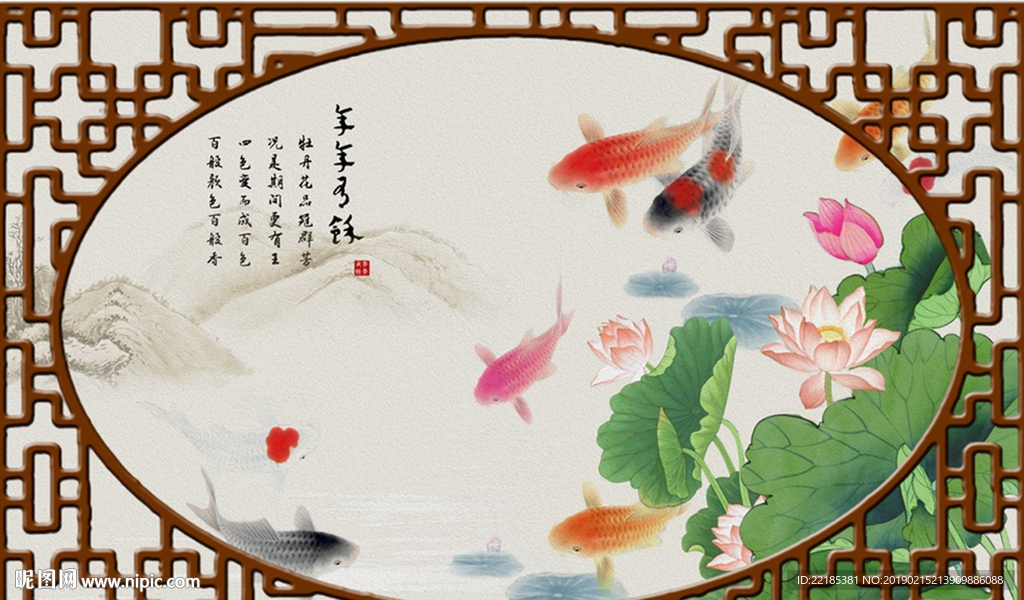 年年有余
牡丹花品冠群芳
况是期间更有王
四色变而成百色
百般颜色百般香
昵图网 www.nipic.com
ID:22185381 NO:20190215213909886088